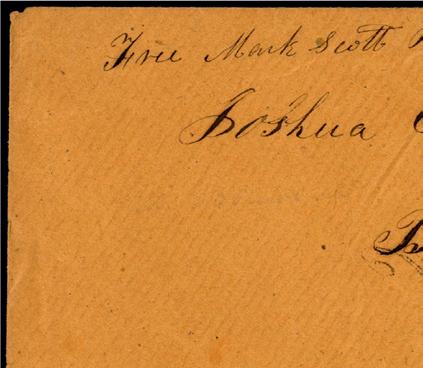 Free Mark Scott
Joshua